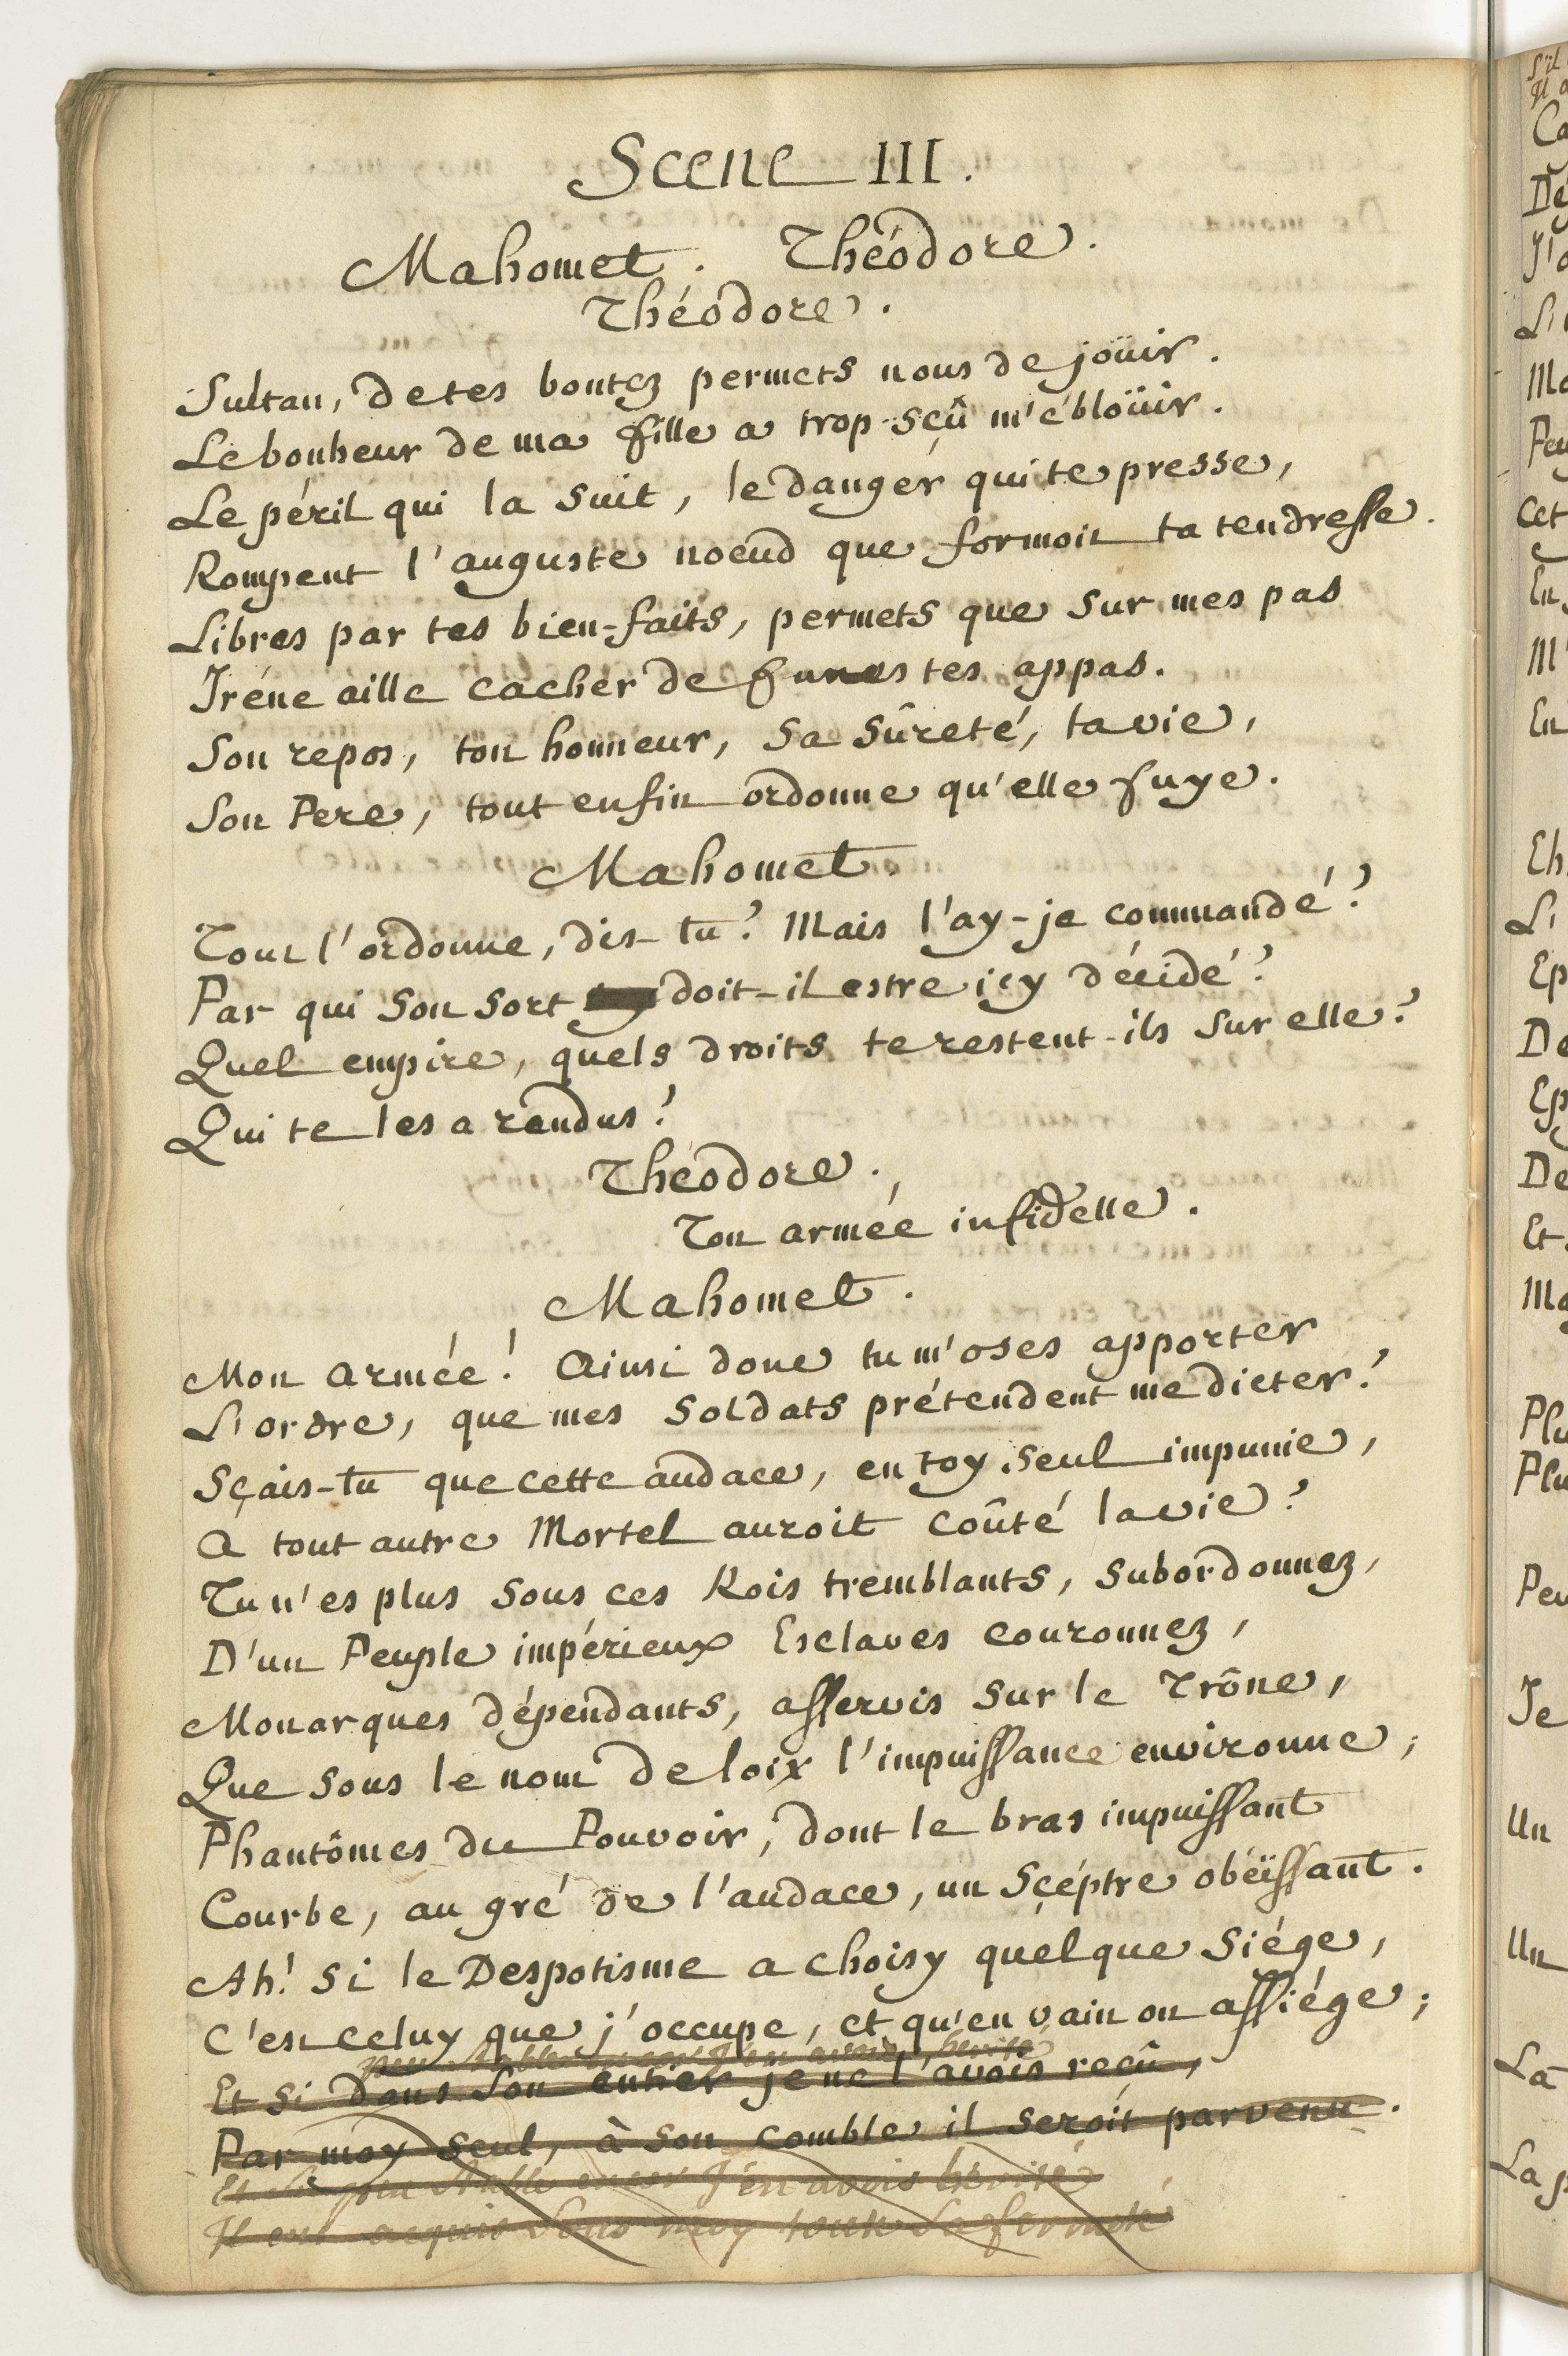 Scene III.
Mahomet. Théodore.
Théodore.
Sultan, de tes bontez permets nous de joüir.
Le bonheur de ma fille a trop sçû m'éblöüir.
Le péril qui la suit, le danger qui te presse,
Rompent l'auguste noeud que formoit ta tendresse.
Libres par tes bien-faits, permets que sur mes pas
Iréne aille cacher de funestes appas.
Son repos, ton honneur, sa sûreté, ta vie,
Son Pere, tout enfin ordonne qu'elle fuye.
Mahomet.
Tout l'ordonne, dis-tu? Mais l'ay-je commandé?
Par qui son sort doit-il estre icy décidé?
Quel empire, quels droits te restent-ils sur elle?
Qui te les a rendus?
Théodore.
Ton armée infidelle.
Mahomet.
Mon armée! Ainsi donc tu m'oses apporter
L'ordre, que mes Soldats prétendent me dicter!
Sçais-tu que cette audace, en toy seul impunie,
A tout autre Mortel auroit coûté la vie?
Tu n'es plus sous ces Rois tremblants, subordonnez,
D'un Peuple impérieux Esclaves couronnez,
Monarques dépendants, asservis sur le Trône,
Que sous le nom de loix l'impuissance environne;
Phantômes du Pouvoir, dont le bras impuissant
Courbe, au gré de l'audace, un Sçéptre obéïssant.
Ah! si le Despotisme a choisy quelque siége,
C'est celuy que j'occupe, et qu'en vain on assiége;
peu stable encor j'en avois hérité
Et si dans son entier je ne l'avois reçû,
Par moy seul, à son comble il seroit parvenu.
Et si peu stable encor j'en avois hérité
Il eut acquis sous moy toute sa fermeté